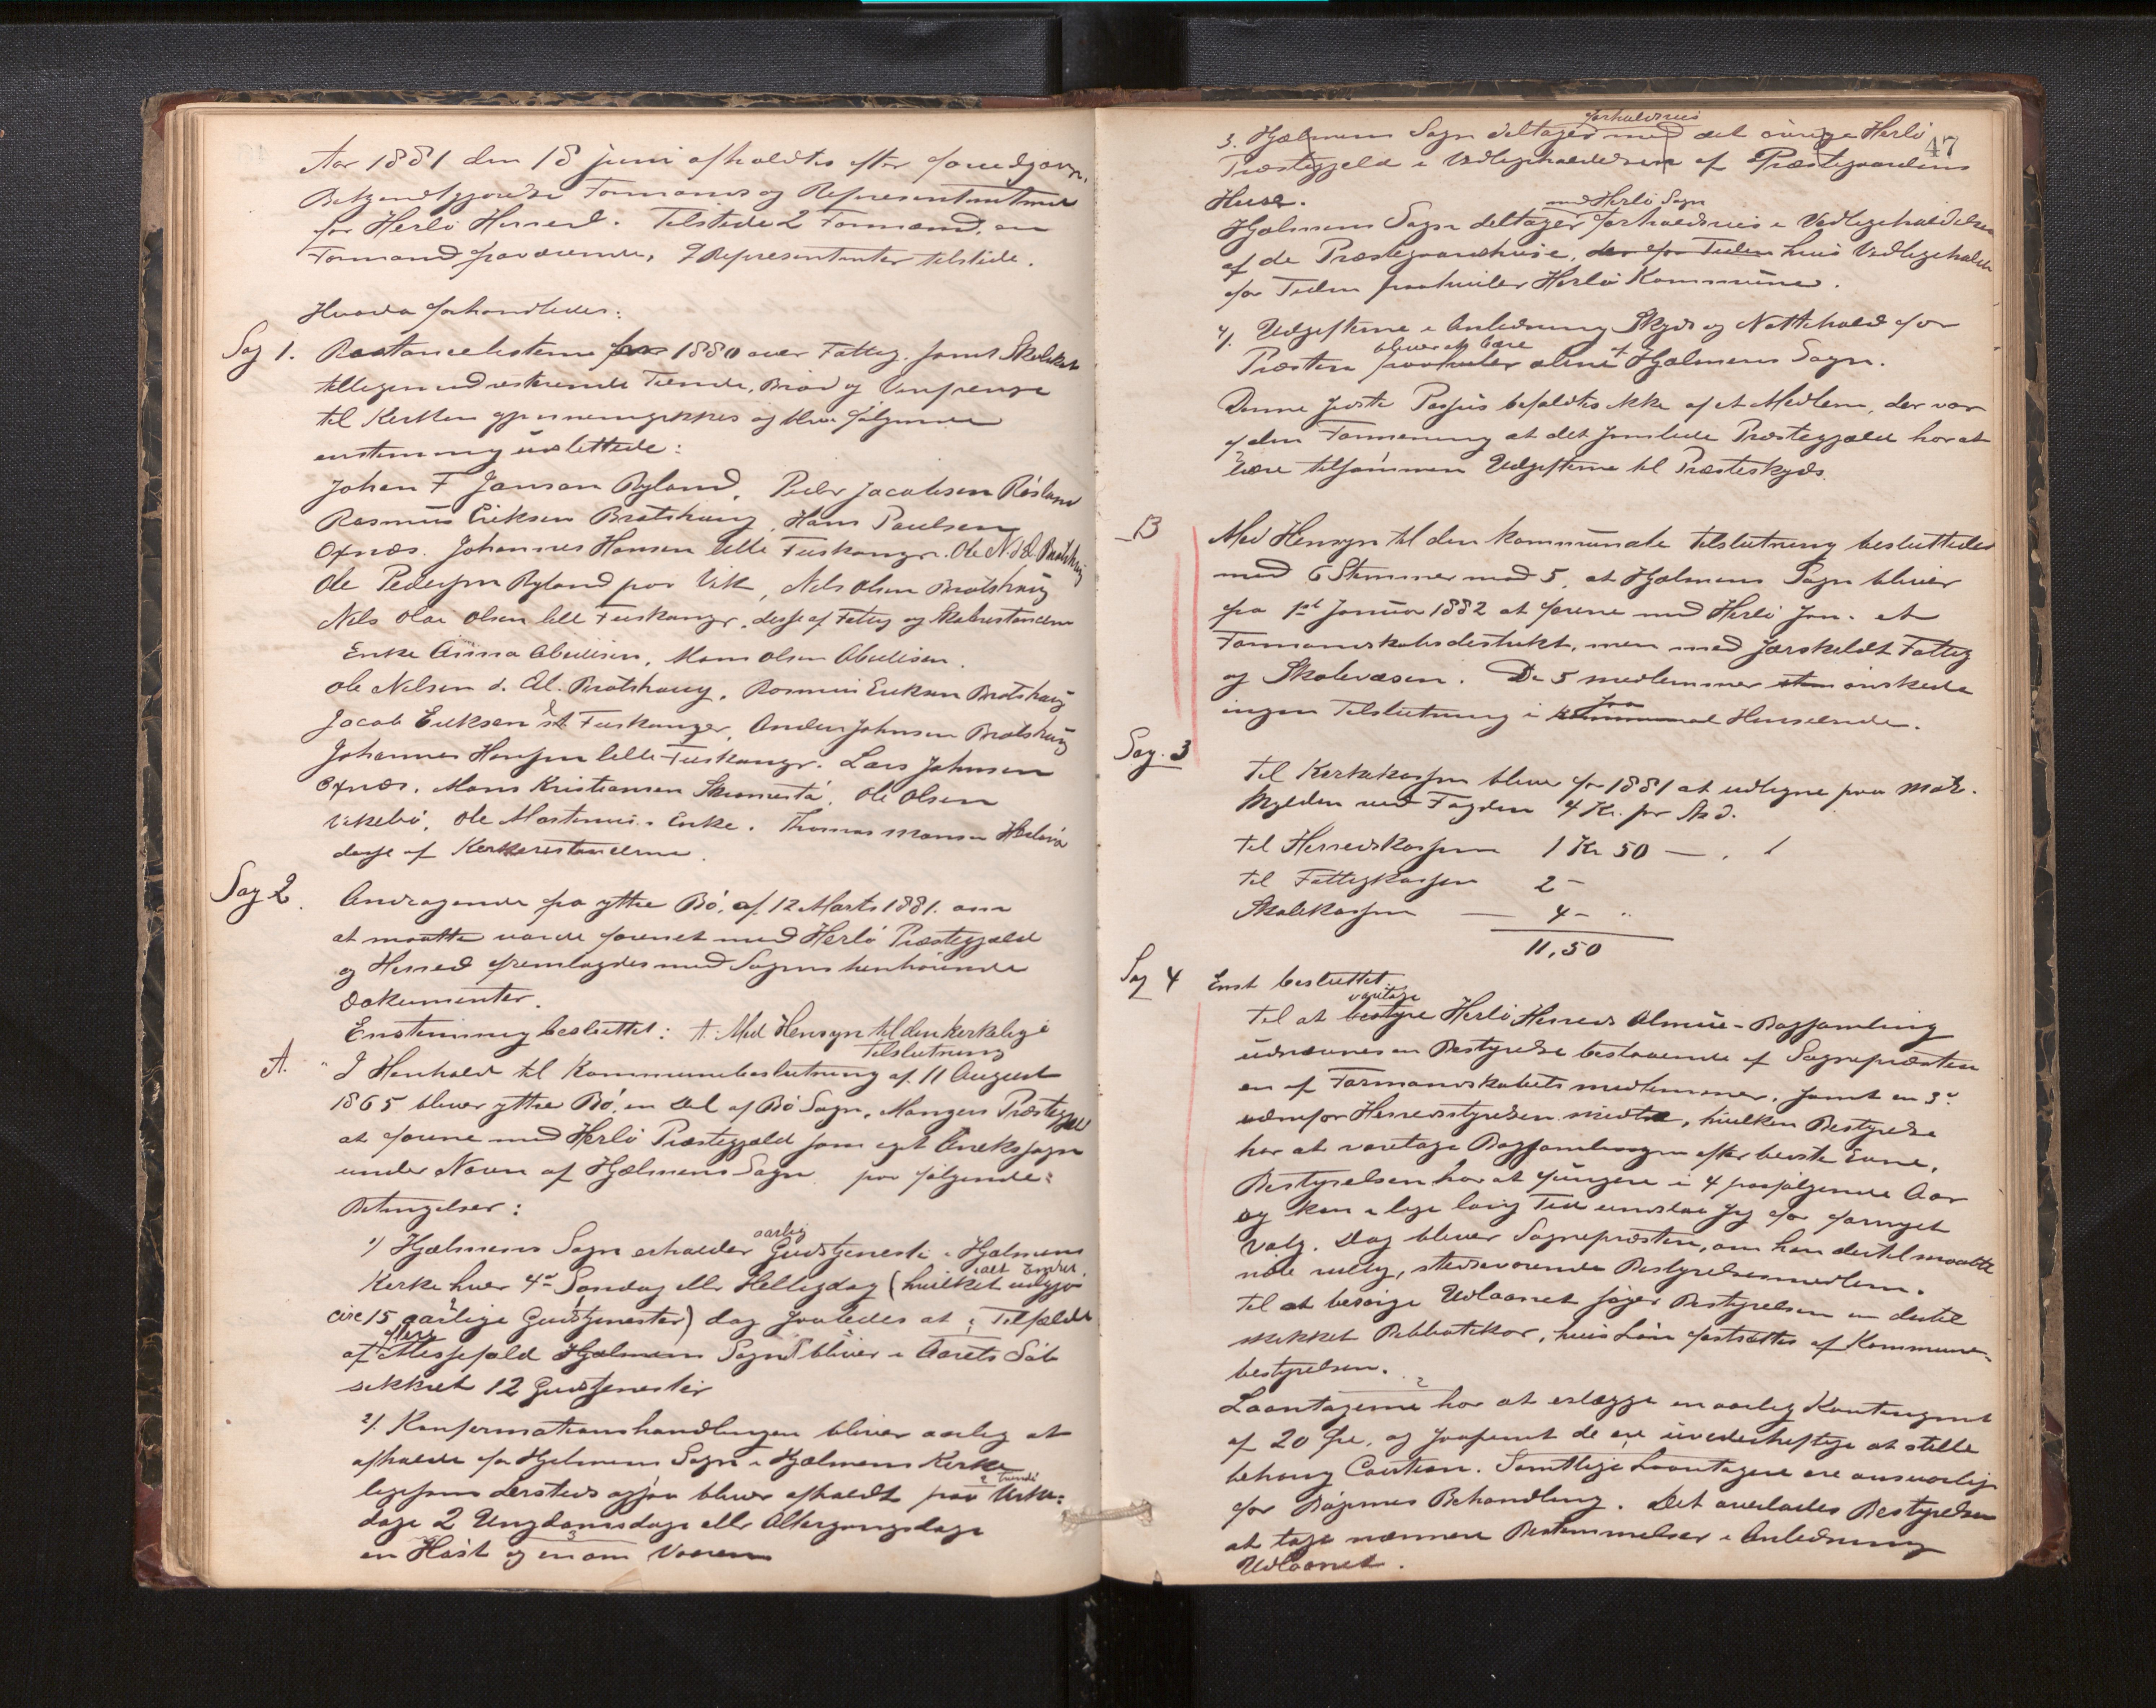 Aar 1881 den 18 juni afholdtes efter forudgaaen.
Bekjendtgjørelse Formands og Representantmøde
for Herlø Herred. Tilstede 2 Formænd, en
Formand fraværende, 9 Representanter tilstede.
Hvorda forhandledes:
Sag 1. Restancelisterne for 1880 over Fattig. samt Skoleskat
tilligemed resterende Tiende, Brød og Vinpenge
til Kirken gjennemgikkes og blev følgende
enstemmig udslettede:
Johan F Jansan Ryland, Peder Jacobsen Røsland
Rasmus Eriksen Bratshaug, Hans Paulsen
Oxnæs. Johannes Hansen lille Fuskanger. Ole N. d. Æ. Bratshaug
Ole Pedersen Ryland paa Vik, Nils Olsen Bratshaug
Nils Olai Olsen lille Fuskanger, disse af Fattig og Skolerestancerne
Enke Anna Abelisen, Mons Olsen Abelisen.
Ole Nilsen d. Æl. Bratshaug, Rasmus Eriksen Bratshaug
Jacob Eriksen st Fuskanger, Anders Johnsen Bratshaug
Johannes Hansen lille Fuskanger. Lars Johnsen
Oxnæs. Mons Kristiansen Skranestø, Ole Olsen
Vikebø, Ole Martinus's Enke. Thomas Monsen Herløvær
disse af Kirkerestancerne.
Sag 2. Andragende fra yttre Bø, af 12 Marts 1881. om
at maatte vorde forenet med Herlø Præstegjæld
og Herred fremlagdes med Sagens henhørende
Dokumenter.
Enstemmig besluttet: A. Med Hensyn til den kirkelige
Tilslutning
A. " I Henhold til Kommunebeslutning af 11 August
1865 bliver yttre Bø, en Del af Bø Sogn, Mangers Præstegjæld
at forene med Herlø Præstegjæld som eget Anekssogn
under Navn af Hjelmens Sogn paa følgende
Betingelser:
1) Hjelmens Sogn erholder aarlig Gudstjeneste i Hjelmens
Kirke hver 4de Søndag eller Helligdag (hvilket udgjør
circ 15 aarlige Gudstjenester) dog saaledes at i Tilfælde
af flere Messefald Hjelmens Sogn bliver i Aarets Løb
sikkret 12 Gudstjenester
2). Konfirmationshandlingen bliver aarlig at
afholde for Hjelmens Sogn i Hjelmens Kirke
ligesom dersteds ogsaa bliver afholdt paa Virke-
dage 2 Ungdomsdage eller Altergangsdage
en Høst og en om Vaaren
47
forholdsvis
3. Hjelmens Sogn deltager med det øvrige Herlø
Præstegjeld i Vedligeholdelsen af Præstegaardens
Huse.
med Herlø Sogn
Hjelmens Sogn deltager forholdsvis i Vedligeholdelsen
af de Præstegaardshuse, der for Tiden hvis Vedligehold
for Tiden paahviler Herlø Kommune.
4). Udgifterne i Anledning Skyds og Nattehold for
bliver at bære af
Præsten paahviler alene Hjelmens Sogn.
Denne sidste Passus befaldtes ikke af et Medlem, der var
af den Formening at det samlede Præstegjæld har at
bære tilsammen Udgifterne til Præsteskyds.
B Med Hensyn til den kommunale Tilslutning besluttedes
med 6 Stemmer mod 5, at Hjelmens Sogn bliver
fra 1ste Januar 1882 at forene med Herlø som et
Formandskabsdistrikt, men med særskildt Fattig
og Skolevæsen. De 5 medlemmer ønskede
ingen Tilslutning i saa Henseende.
Sag. 3 Til Kirkekassen bliver for 1881 at udligne paa Matr.
Skylden ved Fogden 4 Kr. pr Skd.
Til Herredskassen 1 Kr 50 —
Til Fattigkassen 2 -
Skolekassen — 4 -
11,50
Sag 4 Enst besluttet
varetage
Til at bestyre Herlø Herreds Almue-Bogsamling
udnævnes en Bestyrelse bestaaende af Sognepræsten
en af Formandskabets medlemmer, samt en 3die
udenfor Herredsstyrelsen, hvilken Bestyrelse
har at varetage Bogsamlingen efter bedste Evne.
Bestyrelsen har at fungere i 4 paafølgende Aar
og kan i lige lang Tid undslaa sig for fornyet
Valg. Dog bliver Sognepræsten, om han dertil maatte
være villig, stedsevarende Bestyrelsesmedlem.
Til at besørge Udlaanet søger Bestyrelsen en dertil
skikket Bibliotekar, hvis Løn fastsættes af Kommune-
bestyrelsen.
Laantagerne har at erlægge en aarlig Kontingent
af 20 Øre, og saafremt de ere uvederheftige at stille
behørig Caution. Samtlige Laantagere ere ansvarlige
for Bøgernes Behandling. Det overlades Bestyrelsen
at tage nærmere Bestemmelser i Anledning
Udlaanet.